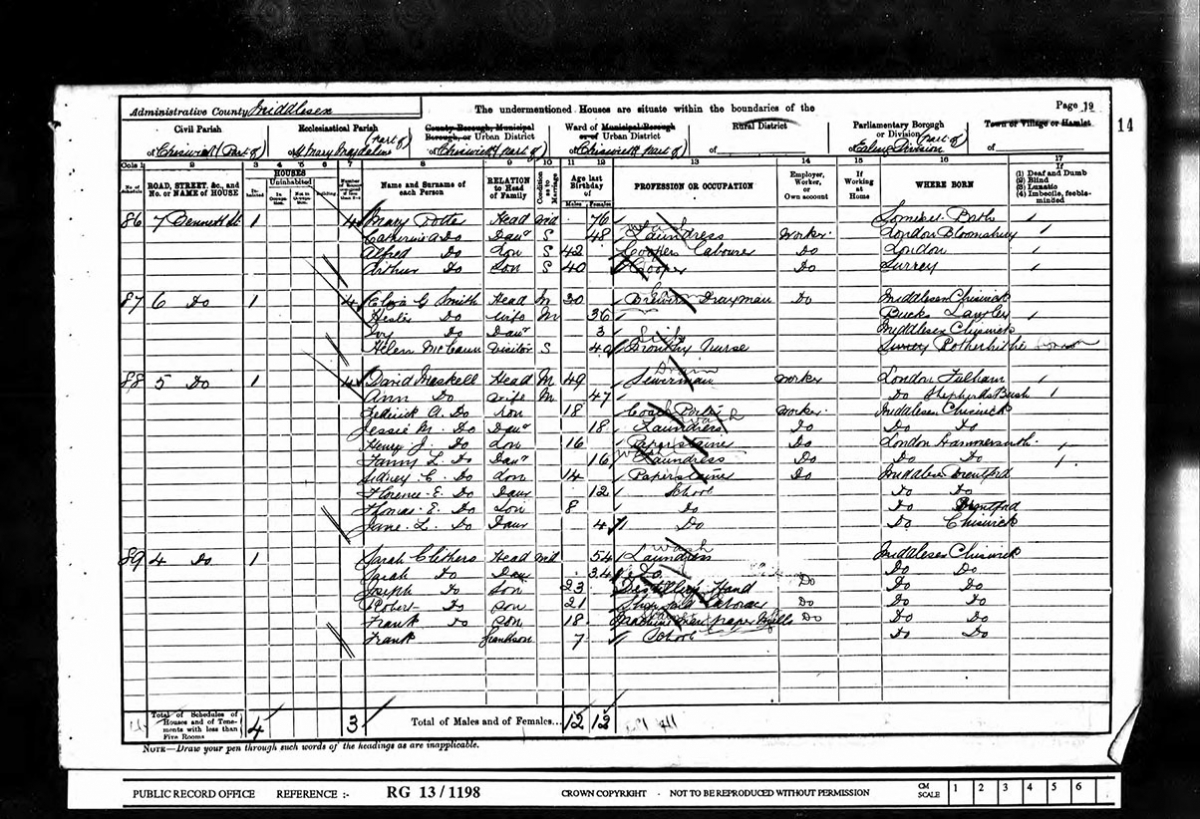 Administrative County Middlesex
The undermentioned Houses are situate within the boundaries of the
Page 19
14
Civil Parish
of Chiswick (Part of)
Ecclesiastical Parish
of St Mary Magdalene (part of)
County Borough, Municipal Borough, or Urban District
of Chiswick (part of)
Ward of Municipal Borough or of Urban District
of Chiswick (part of)
Rural District
of
Parliamentary Borough or Division
of Ealing Division (part of)
Town or Village or Hamlet
of
3 4 5 6 7 8 9 10 11 12 13 14 15 16 17
ROAD, STREET, &c., and No. or NAME of HOUSE
HOUSES
Uninhabited
Building
Name and Surname of each Person
RELATION to Head of Family
Condition as to Marriage
Age last Birthday of
Males Females
PROFESSION OR OCCUPATION
Employer, Worker, or Own account
If Working at Home
WHERE BORN
If (1) Deaf and Dumb (2) Blind (3) Lunatic (4) Imbecile, feeble-minded
86 7 Bennett St. 1 4 Mary Potter Head Wid 76 Somerset Bath
Catherine A Do Daur S 48 Laundress Worker London Bloomsbury
Alfred Do Son S 42 Coopers Labourer Do London
Arthur Do Son S 40 Cooper Do Surrey
87 6 Do 1 4 G Smith Head M 30 Drayman Do Middlesex Chiswick
Do Wife M 36 Bucks Langley
Ivy Do Daur 3 Middlesex Chiswick
Helen McCann Visitor S 49 Monthly Nurse Surrey Rotherhithe
88 5 Do 1 4 David Maskell Head M 49 Sewerman Worker London Fulham
Ann Do Wife M 47 Do Shepherds Bush
Fedrick A. Do Son 18 Coal Porter Worker Middlesex Chiswick
Jessie M. Do Daur 18 Laundress Do Do Do
Henry J. Do Son 16 Paperstainer Do London Hammersmith
Fanny L. Do Daur 16 Laundress Do Do Do
Sidney C. Do Son 14 Paperstainer Do Middlesex Brentford
Florence E. Do Daur 12 School Do Do
Thomas E. Do Son 8 Do Do Brentford
Jane L. Do Daur 4 Do Do Chiswick
89 4 Do 1 Sarah Clithero Head Wid 54 Laundress Middlesex Chiswick
Sarah Do Daur 34 Do Do Do
Joseph Do Son 23 Distillery Hand Do Do Do
Robert Do Son 21 Labourer Do Do Do
Frank Do Son 18 paper Mills Do Do Do
Frank Grandson 7 School Do Do
Total of Schedules of Houses and of Tenements with less than Five Rooms
4 3
Total of Males and of Females... 12 12
NOTE—Draw your pen through such words of the headings as are inapplicable.
PUBLIC RECORD OFFICE REFERENCE :- RG 13/1198 CROWN COPYRIGHT - NOT TO BE REPRODUCED WITHOUT PERMISSION CM SCALE 1 2 3 4 5 6